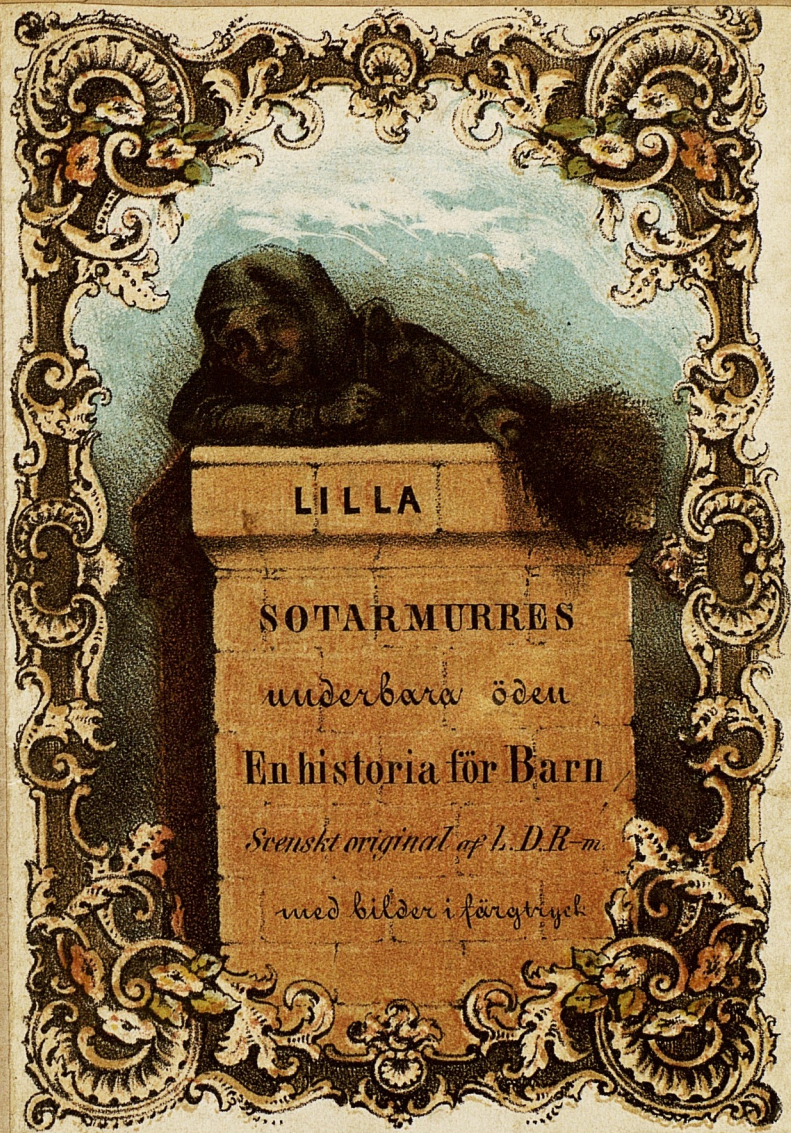 LILLA
SOTARMURRES
underbara öden
En historia för Barn
Svenskt original af L. D. R–m.
med bilder i färgtryck